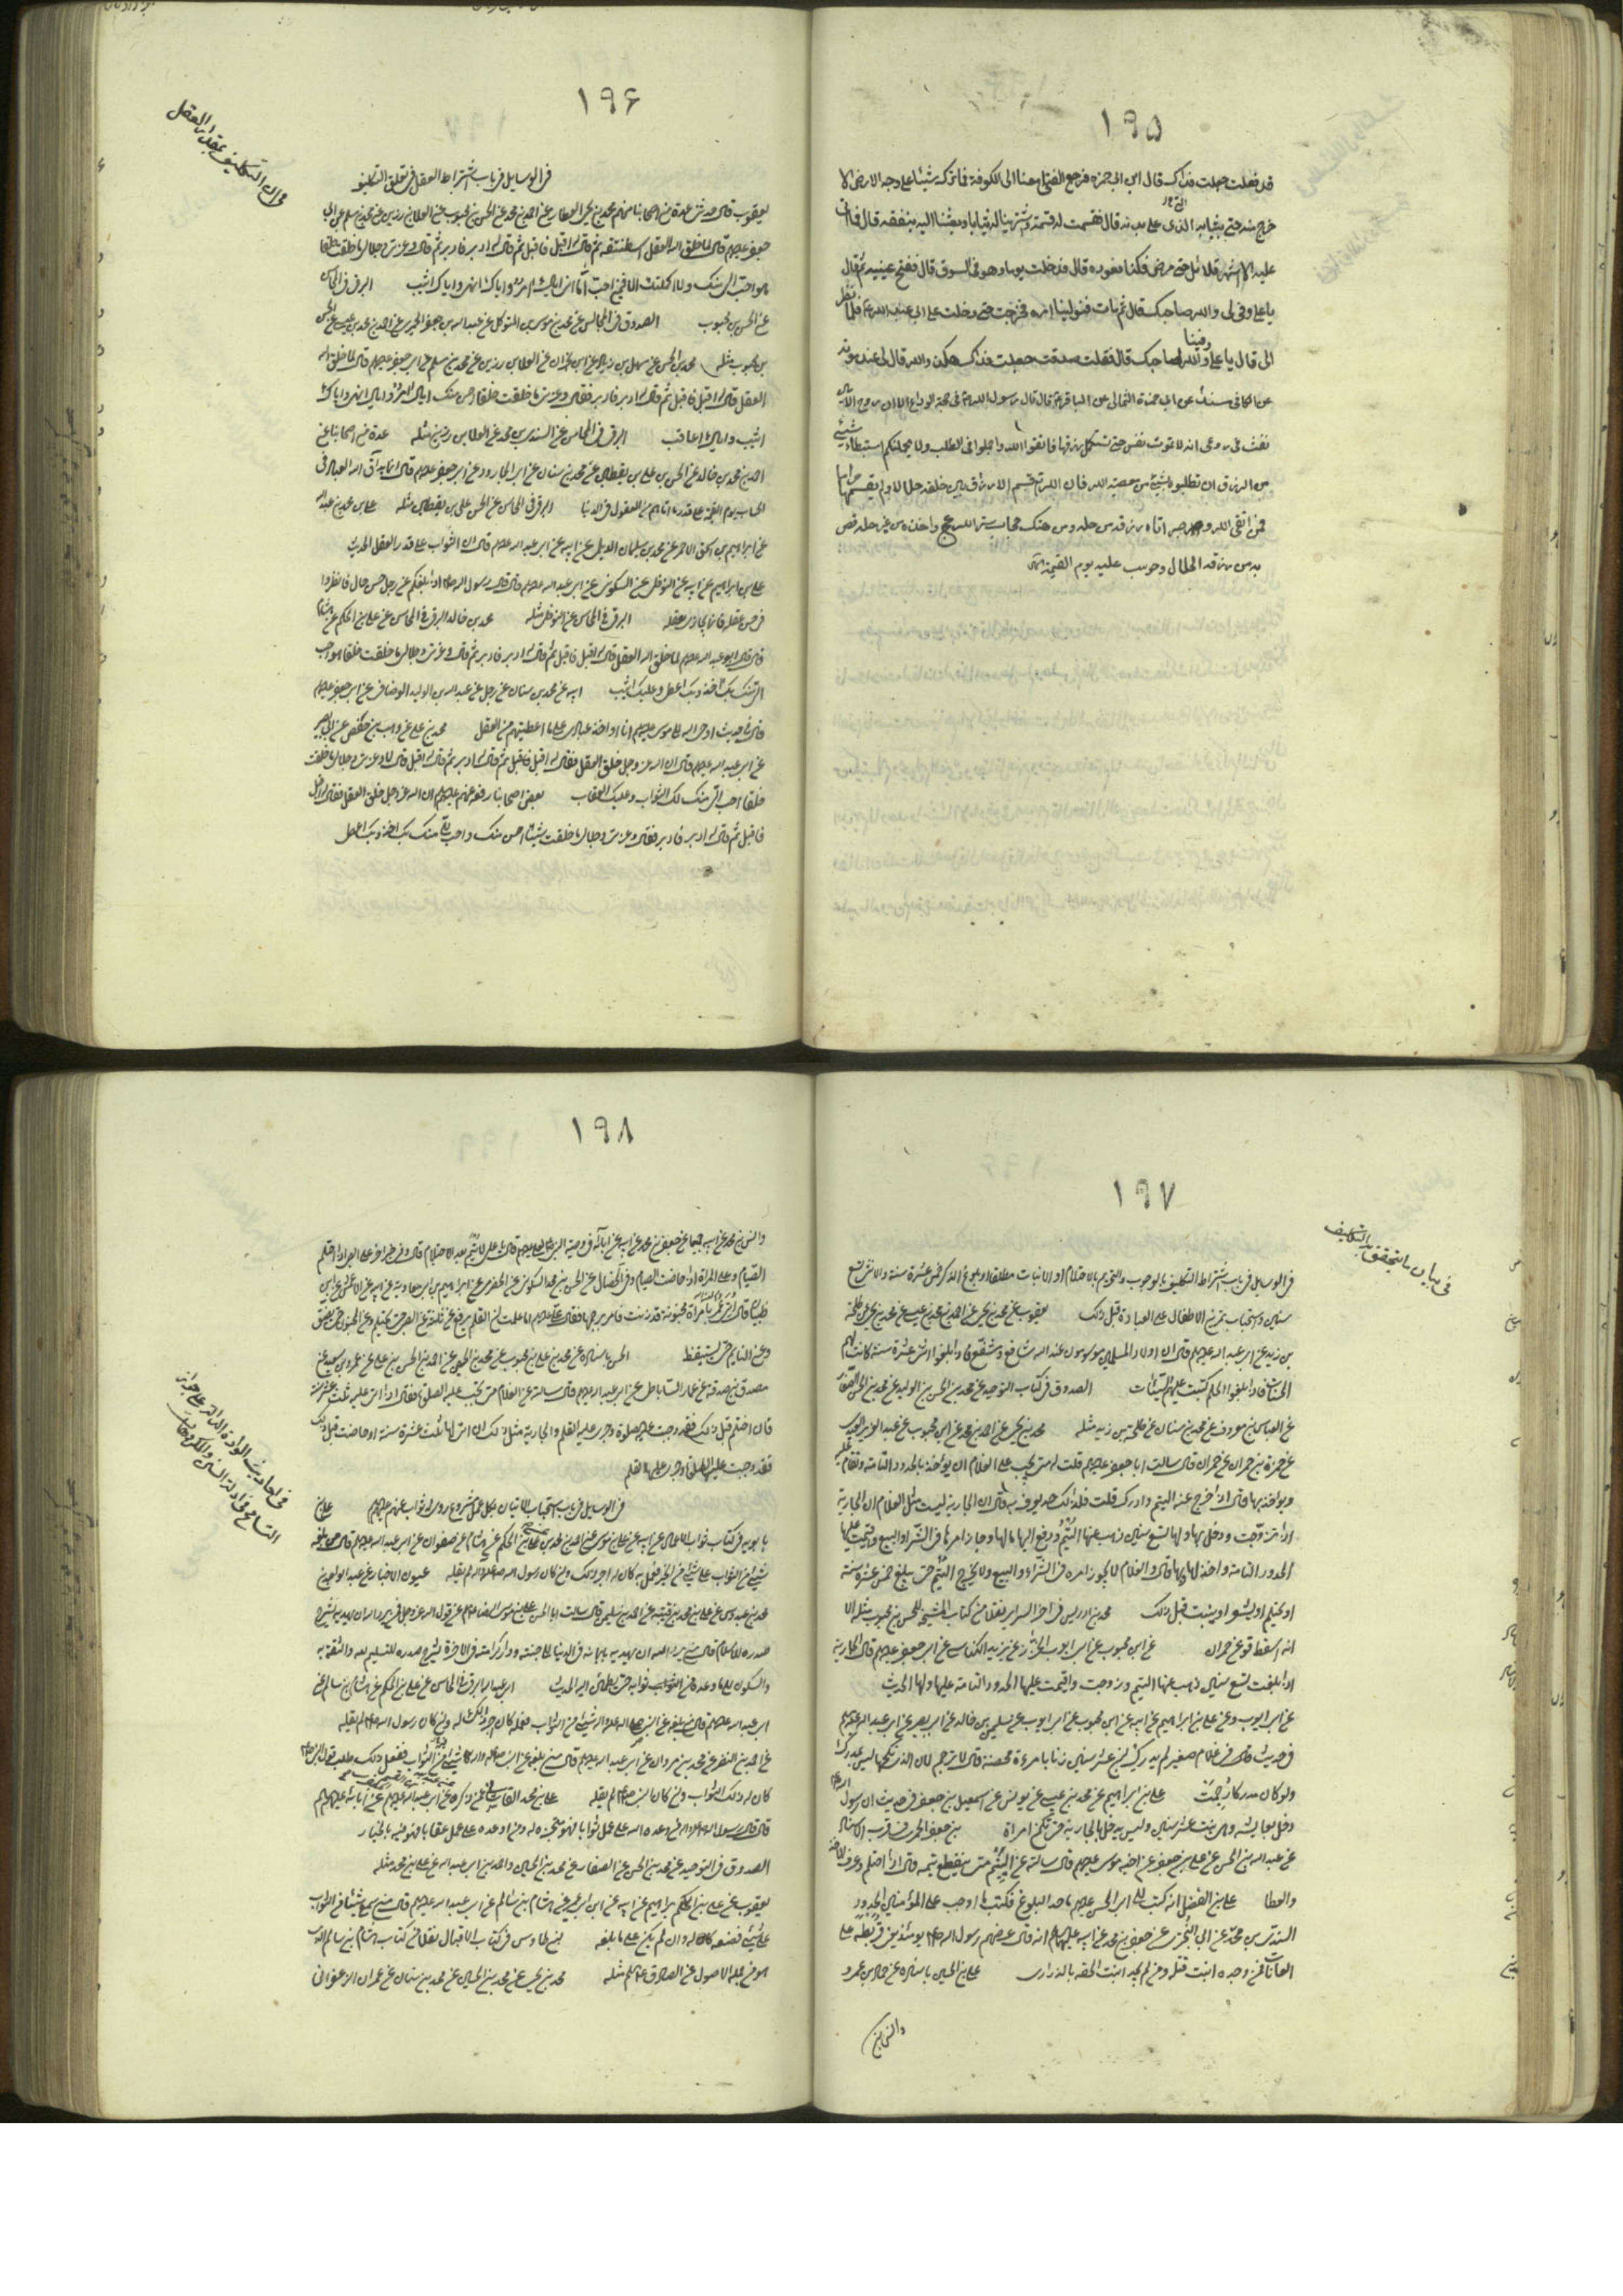 ١٩٥
قد فعلت جعلت فداك قال ابن ابى حمزه فرجع الفتى معنا الى الكوفة فما ترك شيئا على وجه الارض الا
خرج منه حتى ثيابه التى على بدنه قال فقسمت له قسمة واشترينا له ثيابا وبعثنا اليه بنفقه قال فما اتى
عليه الا اشهر قلائل حتى مرض فكنا نعوده قال فدخلت يوما وهو فى السوق قال ففتح عينيه ثم قال
يا على وفى لى والله صاحبك قال ثم مات فتولينا امره فخرجت حتى دخلت على ابى عبد الله ع فلما نظر
الى قال يا على وفينا والله لصاحبك قال فقلت صدقت جعلت فداك هكذا والله قال لى عند موته
عن الكافى عن ابى حمزة الثمالى عن الباقر ع قال قال رسول الله ص فى حجة الوداع الا ان روح الامين
نفث فى روعى انه لا تموت نفس حتى تستكمل رزقها فاتقوا الله واجملوا فى الطلب ولا يحملنكم استبطاء شيئ
من الرزق ان تطلبوه بشيئ من معصية الله فان الله تع قسم الارزاق بين خلقه حلالا ولم يقسمها حراما
فمن اتقى الله وصبر اتاه رزقه من حله ومن هتك حجاب ستر الله عج واخذه من غير حله قص
به من رزقه الحلال وحوسب عليه يوم القيمة
١٩۶
فى ان التكليف بقدر العقل
فى الوسايل فى باب اشتراط العقل فى تعلق التكليف
يعقوب قال حدثنى عدة من اصحابنا منهم محمد بن يحيى العطار عن احمد بن محمد عن الحسن بن محبوب عن العلا بن رزين عن محمد بن مسلم عن ابى
جعفر عليهم قال لما خلق الله العقل استنطقه ثم قال له اقبل فاقبل ثم قال له ادبر فادبر ثم قال وعزتى وجلالى ما خلقت خلقا
هو احب الى منك ولا اكملتك الا فيمن احب اما انى اياك امر واياك انهى واياك اثيب البرقى فى المحاسن
عن الحسن بن محبوب الصدوق فى المجالس عن محمد بن موسى بن المتوكل عن عبد الله بن جعفر الحميرى عن احمد بن محمد بن عيسى عن الحسن
بن محبوب مثله محمد بن الحسن عن سهل بن زياد عن ابن ابى نجران عن العلا بن رزين عن محمد بن مسلم عن ابى جعفر عليهم قال لما خلق الله
العقل قال له اقبل فاقبل ثم قال له ادبر فادبر فقال وعزتى ما خلقت خلقا احسن منك اياك امر واياك انهى واياك
اثيب واياك اعاقب البرقى فى المحاسن عن السندى بن محمد عن العلا بن رزين مثله عدة من اصحابنا عن
احمد بن محمد بن خالد عن الحسن بن على بن يقطين عن محمد بن سنان عن ابى الجارود عن ابى جعفر عليهم قال انما يداق الله العباد فى
الحساب يوم القيمة على قدر ما اتاهم من العقول فى الدنيا البرقى فى المحاسن عن الحسن بن على بن يقطين مثله على بن محمد بن عبد الله
عن ابراهيم بن اسحق الاحمر عن محمد بن سليمان الديلمى عن ابيه عن ابى عبد الله عليهم قال ان الثواب على قدر العقل الحديث
على بن ابراهيم عن ابيه عن النوفلى عن السكونى عن ابى عبد الله عليهم قال قال رسول الله ص اذا بلغكم عن رجل حسن حال فانظروا
فى حسن عقله فانما يجازى بعقله البرقى فى المحاسن عن النوفلى مثله محمد بن خالد البرقى فى المحاسن عن على بن الحكم عن هشام
قال قال ابو عبد الله عليهم لما خلق الله العقل قال له اقبل فاقبل ثم قال له ادبر فادبر ثم قال وعزتى وجلالى ما خلقت خلقا هو احب
الى منك بك اخذ وبك اعطى وعليك اثيب ابيه عن محمد بن سنان عن رجل عن عبيد الله بن الوليد الوصافى عن ابى جعفر عليهم
قال فى حديث اوحى الله الى موسى عليهم انا اواخذ عبادى على ما اعطيتهم من العقل محمد بن على عن وهب بن حفص عن ابى بصير
عن ابى عبد الله عليهم قال ان الله عز وجل خلق العقل فقال له اقبل فاقبل ثم قال له ادبر ثم قال له اقبل قال لا وعزتى وجلالى ما خلقت
خلقا احب الى منك لك الثواب وعليك العقاب بعض اصحابنا رفعه عنهم عليهم ان الله عز وجل خلق العقل فقال له اقبل
فاقبل ثم قال له ادبر فادبر فقال وعزتى وجلالى ما خلقت شيئا احسن منك واحب الى منك بك اخذ وبك اعطى
١٩٧
فى بيان ما يتحقق به التكليف
فى الوسايل فى باب اشتراط التكليف بالوجوب والتحريم بالاحتلام او الانبات مطلقا او بلوغ الذكر خمس عشرة سنة والانثى تسع
سنين واستحباب تمرين الاطفال على العبادة قبل ذلك يعقوب عن محمد بن يحيى عن احمد بن محمد بن عيسى عن محمد بن يحيى عن طلحة
بن زيد عن ابى عبد الله عليهم قال ان اولاد المسلمين موسومون عند الله شافع ومشفع فاذا بلغوا اثنى عشرة سنة كانت لهم
الحسنات فاذا بلغوا الحلم كتبت عليهم السيئات الصدوق فى كتاب التوحيد عن محمد بن الحسن بن الوليد عن محمد بن الحسن الصفار
عن العباس بن معروف عن محمد بن سنان عن طلحة بن زيد مثله محمد بن يحيى عن احمد بن محمد عن ابن محبوب عن عبد العزيز العبدى
عن حمزة بن حمران عن حمران قال سالت ابا جعفر عليهم قلت له متى يجب على الغلام ان يؤخذ بالحدود التامة وتقام عليه
ويؤاخذ بها قال اذا خرج عنه اليتم وادرك قلت فلذلك حد يعرف به قال ان الجارية ليست مثل الغلام ان الجارية
اذا تزوجت ودخل بها ولها تسع سنين ذهب عنها اليتم ودفع اليها مالها وجاز امرها فى الشراء والبيع واقيمت عليها
الحدود التامة واخذ لها وبها قال والغلام لا يجوز امره فى الشراء والبيع ولا يخرج اليتم حتى يبلغ خمس عشرة سنة
او يحتلم او يشعر او ينبت قبل ذلك محمد بن ادريس فى اخر السراير نقلا من كتاب المشيخة للحسن بن محبوب مثله الا
انه اسقط قوله عن حمران عن ابن محبوب عن ابى ايوب الخزاز عن يزيد الكناسى عن ابى جعفر عليهم قال الجارية
اذا بلغت تسع سنين ذهب عنها اليتم وزوجت واقيمت عليها الحدود التامة عليها ولها الحديث
عن ابى ايوب وعن على بن ابراهيم عن ابيه عن ابن محبوب عن ابى ايوب عن سليمن بن خالد عن ابى بصير عن ابى عبد الله عليهم
فى حديث قال فى غلام صغير لم يدرك ابن عشر سنين زنا بامرءة محصنة قال لا ترجم لان الذى نكحها ليس بمدرك
ولو كان مدركا رجمت على بن ابراهيم عن محمد بن عيسى عن يونس عن اسمعيل بن جعفر فى حديث ان رسول الله ص
دخل بعايشه وهى بنت عشر سنين وليس يدخل بالجارية حتى تكون امراة بن جعفر الحميرى فى قرب الاسناد
عن عبد الله بن الحسن عن على بن جعفر عن اخيه موسى عليهم قال سالته عن اليتيم متى ينقطع يتمه قال اذا احتلم وعرف الاخذ
والعطا على بن الفضل انه كتب الى ابى الحسن عليهم ما حد البلوغ فكتب ما اوجب على المؤمنين الحدود
السندى بن محمد عن ابى البخترى عن جعفر بن محمد عن ابيه عليهما انه قال عرضهم رسول الله ص يومئذ يعنى قريظة على
العانات فمن وجده انبت قتله ومن لم يجد انبت الحقه بالذرارى على بن الحسين باسناده عن حماد بن عمرو
وانس بن
١٩٨
فى احاديث الواردة الدالة على جواز
التسامح فى ادلة السنن والمكروهات
وانس بن محمد عن ابيه جميعا عن جعفر بن محمد عن ابيه عن ابائه فى وصية النبى لعلى عليهم قال يا على لا يتم بعد الاحتلام قال وفى خبر اخر على الصبى اذا احتلم
الصيام وعلى المراة اذا حاضت الصيام وفى الخصال عن الحسن بن محمد السكونى عن الحضرمى عن ابراهيم بن ابى معاوية عن ابيه عن الاعمش عن ابن
ظبيان قال اتى عمر بامراة مجنونة قد زنت فامر برجمها فقال على عليهم اما علمت ان القلم يرفع عن ثلثة عن الصبى حتى يحتلم وعن المجنون حتى يفيق
وعن النايم حتى يستيقظ الحسن باسناده عن محمد بن على بن محبوب عن محمد بن الحسين عن احمد بن الحسن بن على عن عمرو بن سعيد عن
مصدق بن صدقة عن عمار الساباطى عن ابى عبد الله عليهم قال سالته عن الغلام متى تجب عليه الصلوة فقال اذا اتى عليه ثلث عشرة سنة
فان احتلم قبل ذلك فقد وجبت عليه الصلوة وجرى عليه القلم والجارية مثل ذلك ان اتى لها ثلث عشرة سنة او حاضت قبل ذلك
فقد وجبت عليها الصلوة وجرى عليها القلم
فى الوسايل فى باب استحباب الاتيان بكل عمل مشروع روى له ثواب عنهم عليهم على بن
بابويه فى كتاب ثواب الاعمال عن ابيه عن على بن موسى عن احمد بن محمد عن على بن الحكم عن هشام عن صفوان عن ابى عبد الله عليهم قال من بلغه
شيئ من الثواب على شيئ من الخير فعمل به كان له اجر ذلك وان كان رسول الله ص لم يقله عيون الاخبار عن عبد الواحد بن
محمد بن عبدوس عن على بن محمد بن قتيبة عن حمدان بن سليمن قال سالت ابا الحسن على بن موسى الرضا عن قول الله عز وجل فمن يرد الله ان يهديه يشرح
صدره للاسلام قال من يرد الله ان يهديه بايمانه فى الدنيا الى جنته ودار كرامته فى الاخرة يشرح صدره للتسليم لله والثقة به
والسكون الى ما وعده من ثوابه حتى يطمئن اليه الحديث ابى عبد الله البرقى فى المحاسن عن على بن الحكم عن هشام بن سالم عن
ابى عبد الله عليهم قال من بلغه عن النبى ص شيئ من الثواب فعمله كان اجر ذلك له وان كان رسول الله ص لم يقله
عن احمد بن النضر عن محمد بن مروان عن ابى عبد الله عليهم قال من بلغه عن النبى ص شيئ من الثواب ففعل ذلك طلب قول النبى ص
كان له ذلك الثواب وان كان النبى ص لم يقله على بن محمد القاسانى عمن ذكره عن ابى عبد الله عليهم عن ابائه عليهم
قال قال رسول الله ص من وعده الله على عمل ثوابا فهو منجزه له ومن اوعده على عمل عقابا فهو فيه بالخيار
الصدوق فى التوحيد عن محمد بن الحسن عن الصفار عن محمد بن الحسين واحمد بن ابى عبد الله عن على بن محمد مثله
يعقوب عن على بن ابراهيم عن ابيه عن ابن ابى عمير عن هشام بن سالم عن ابى عبد الله عليهم قال من سمع شيئا من الثواب
على شيئ فصنعه كان له وان لم يكن على ما بلغه بن طاوس فى كتاب الاقبال نقلا من كتاب هشام بن سالم الذى
هو من جملة الاصول عن الصادق عليهم مثله محمد بن يحيى عن محمد بن الحسين عن محمد بن سنان عن عمران الزعفرانى